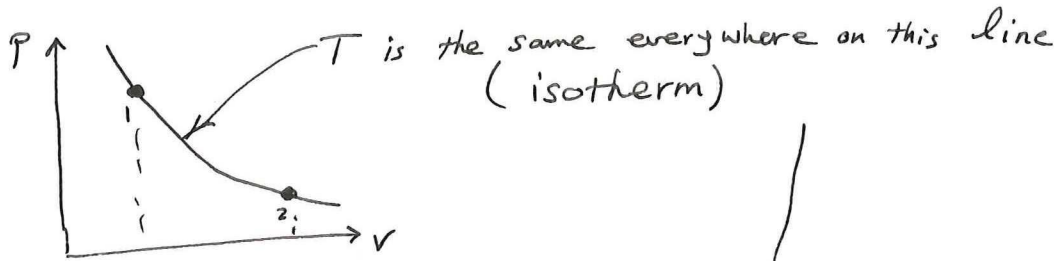 P
T is the same everywhere on this line
(isotherm)
1
2
V